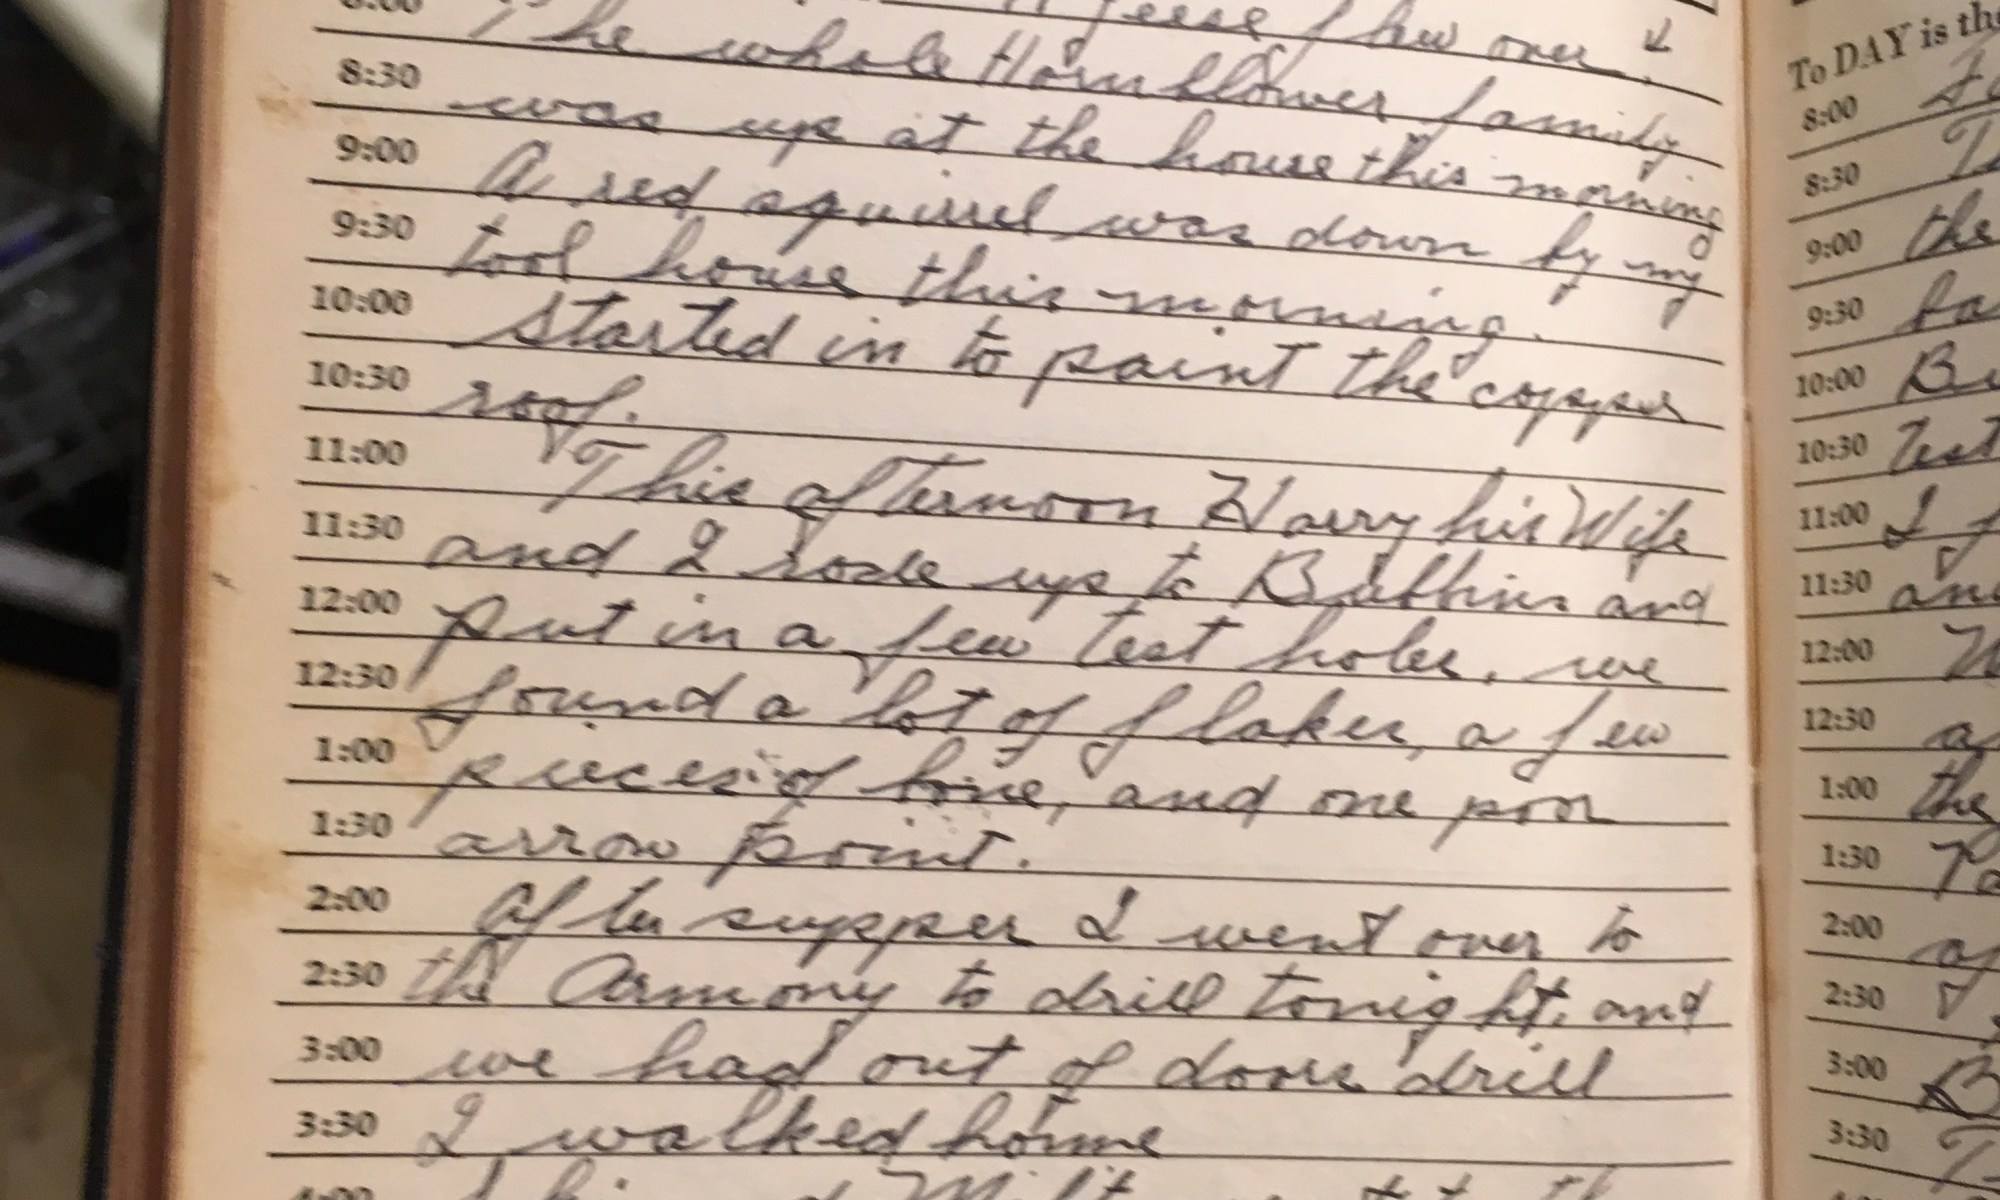 geese flew over
The whole Hornblower family
8:30 was up at the house this morning
9:00 A red squirrel was down by my
9:30 tool house this morning.
10:00 Started in to paint the copper
10:30 roof.
11:00 This afternoon Harry his Wife
11:30 and I rode up to and
12:00 put in a few test holes, we
12:30 found a lot of flakes, a few
1:00 pieces of bone, and one poor
1:30 arrow point.
2:00 After supper I went over to
2:30 the Armony to drill tonight, and
3:00 we had out of doors drill
3:30 I walked home
4:00
To DAY is the
8:00
8:30
9:00 the
9:30
10:00
10:30 Test
11:00 I
11:30 and
12:00
12:30
1:00 the
1:30
2:00
2:30
3:00
3:30